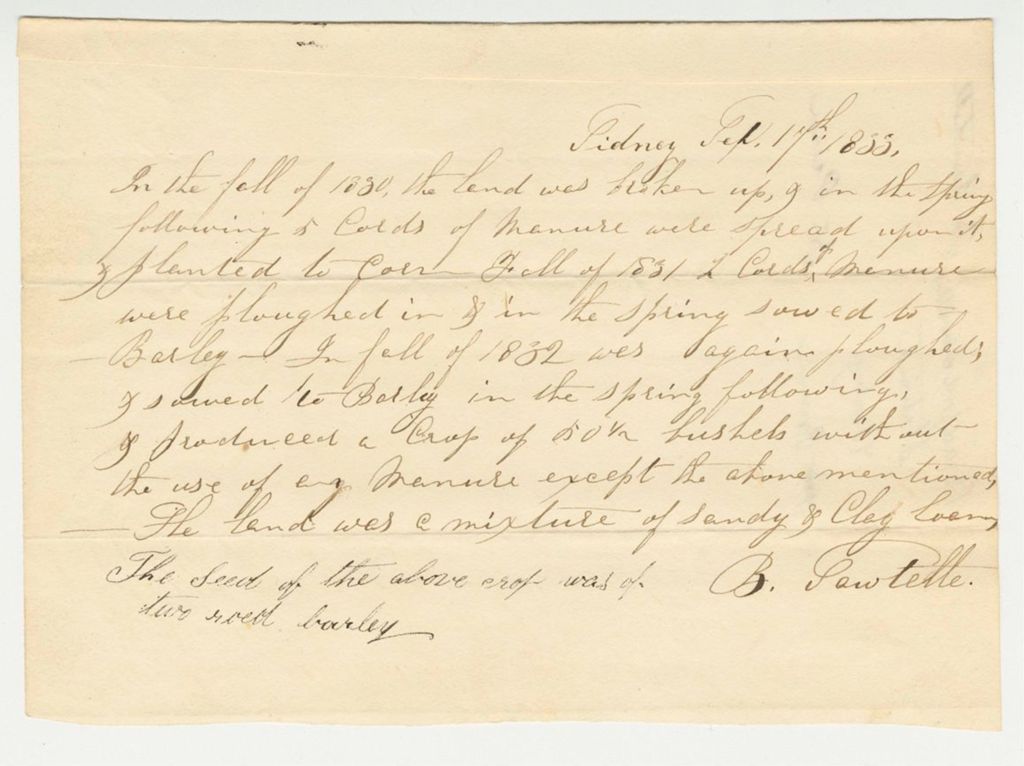 Sidney Sep. 17th, 1833.
In the fall of 1830, the land was broken up, & in the spring
following 5 Cords of Manure were spread upon it,
& planted to Corn Fall of 1831 2 Cords of Manure
were ploughed in & in the spring sowed to
– Barley – In fall of 1832 was again ploughed,
& sowed to Barley in the spring following,
& produced a Crop of 50½ bushels without
the use of any Manure except the above mentioned,
— The land was a mixture of sandy & Clay loam,
The seed of the above crop was of B. Sawtelle.
two roed barley